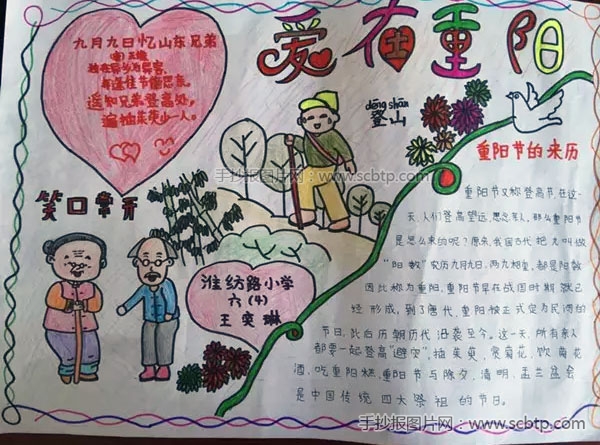 爱在重阳
九月九日忆山东兄弟
独在异乡为异客,
每逢佳节倍思亲。
遥知兄弟登高处,
遍插茱萸少一人。
dēng shān
登山
笑口常开
淮纺路小学
六(4)
王奕琳
重阳节的来历
重阳节又称登高节在这一
天,人们登高望远,思念亲人,那么重阳节
是怎么来的呢?原来,我国古代把九叫做
"阳数"农历九月九日,两九相重,都是阳数
因此称为重阳,重阳节早在战国时期就已
经形成,到了唐代,重阳被正式定为民间的
节日,此后历朝历代沿袭至今。这一天,所有亲人
都要一起登高"避灾",插茱萸,赏菊花,饮菊花
酒,吃重阳糕,重阳节与除夕,清明,盂兰盆会
是中国传统四大祭祖的节日。
手抄报图片网·www.scbtp.com
手抄报图片网-www.scbtp.com